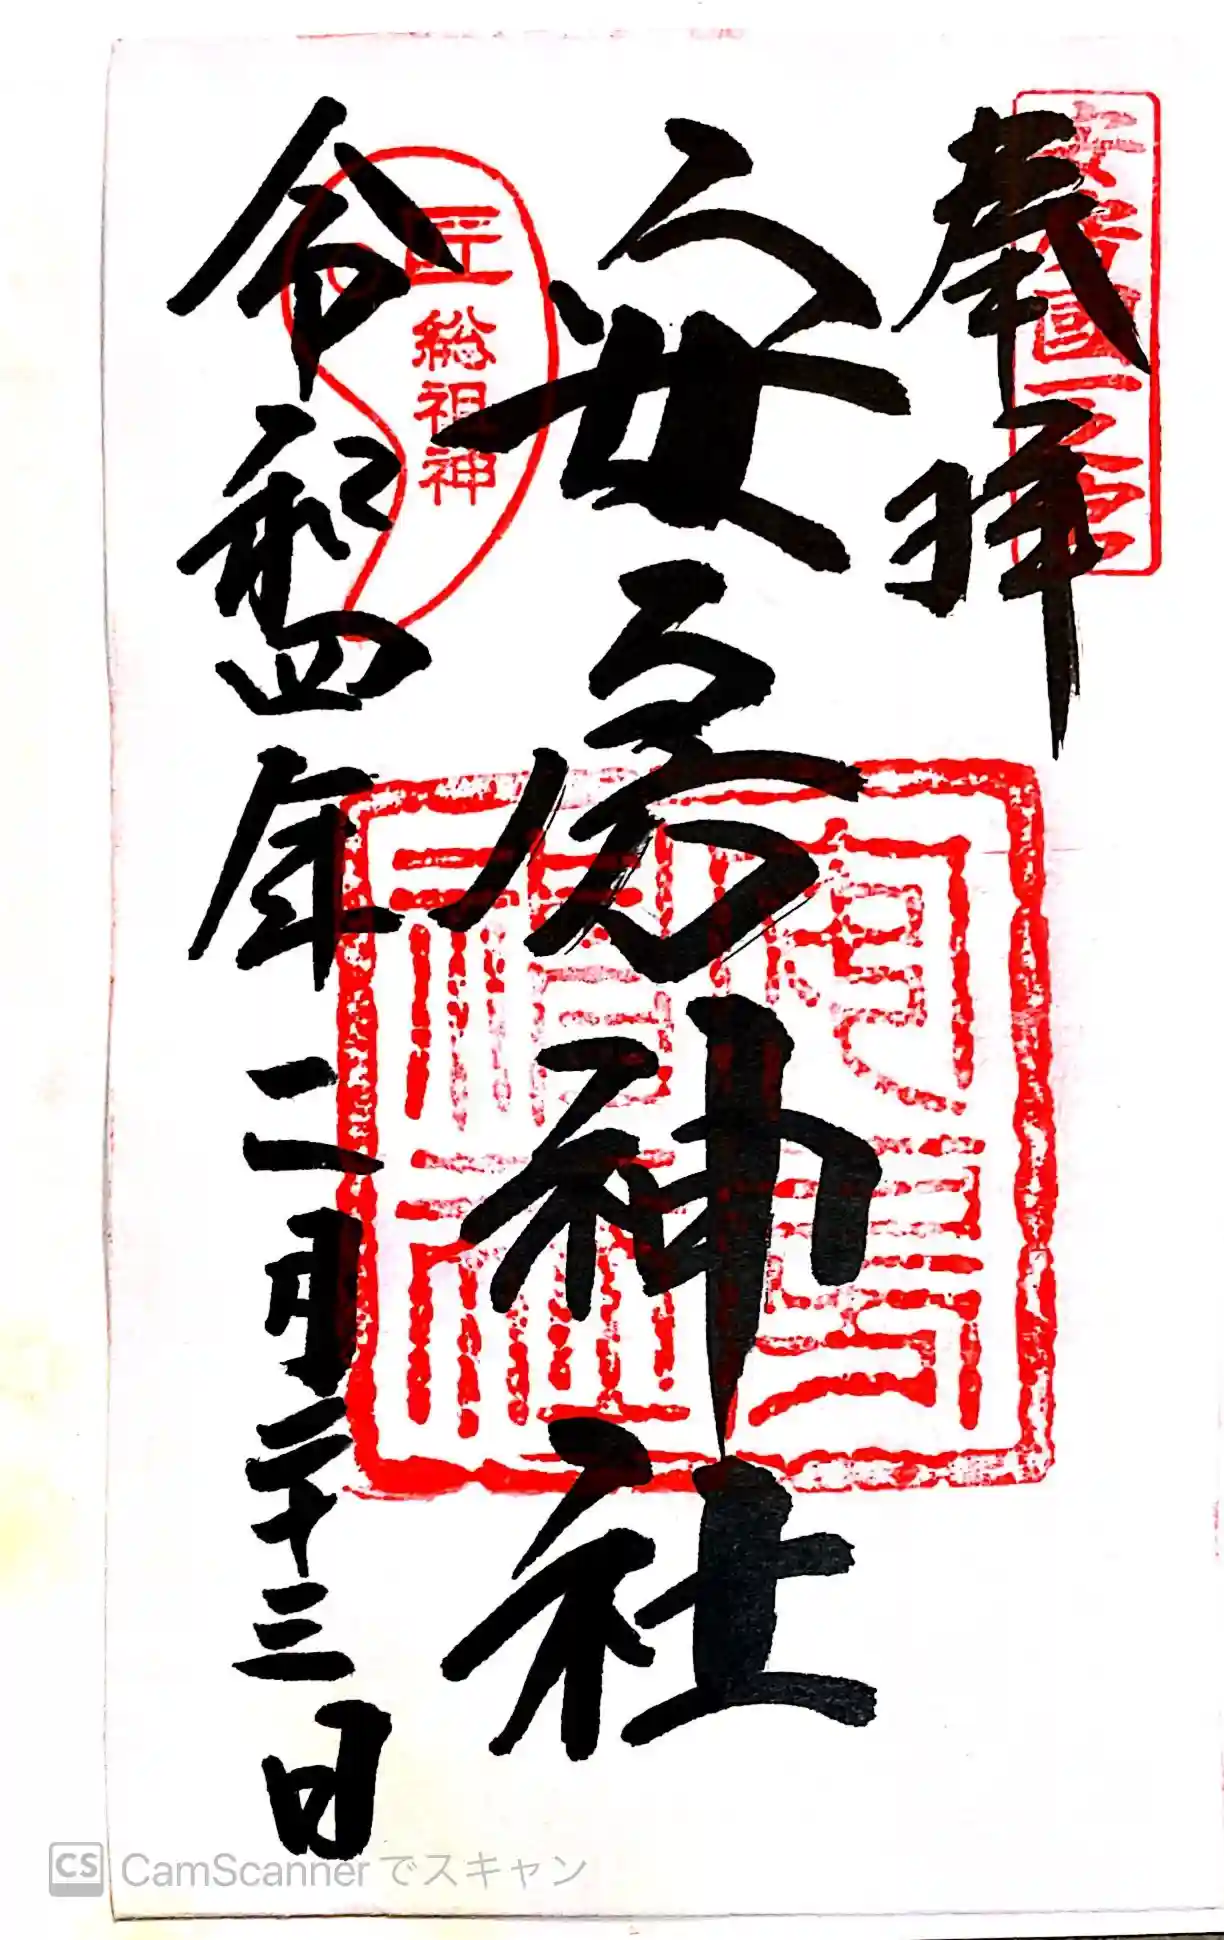 奉拝
安房國一之宮
安房神社
匠総祖神
令和四年二月二十三日
CamScannerでスキャン